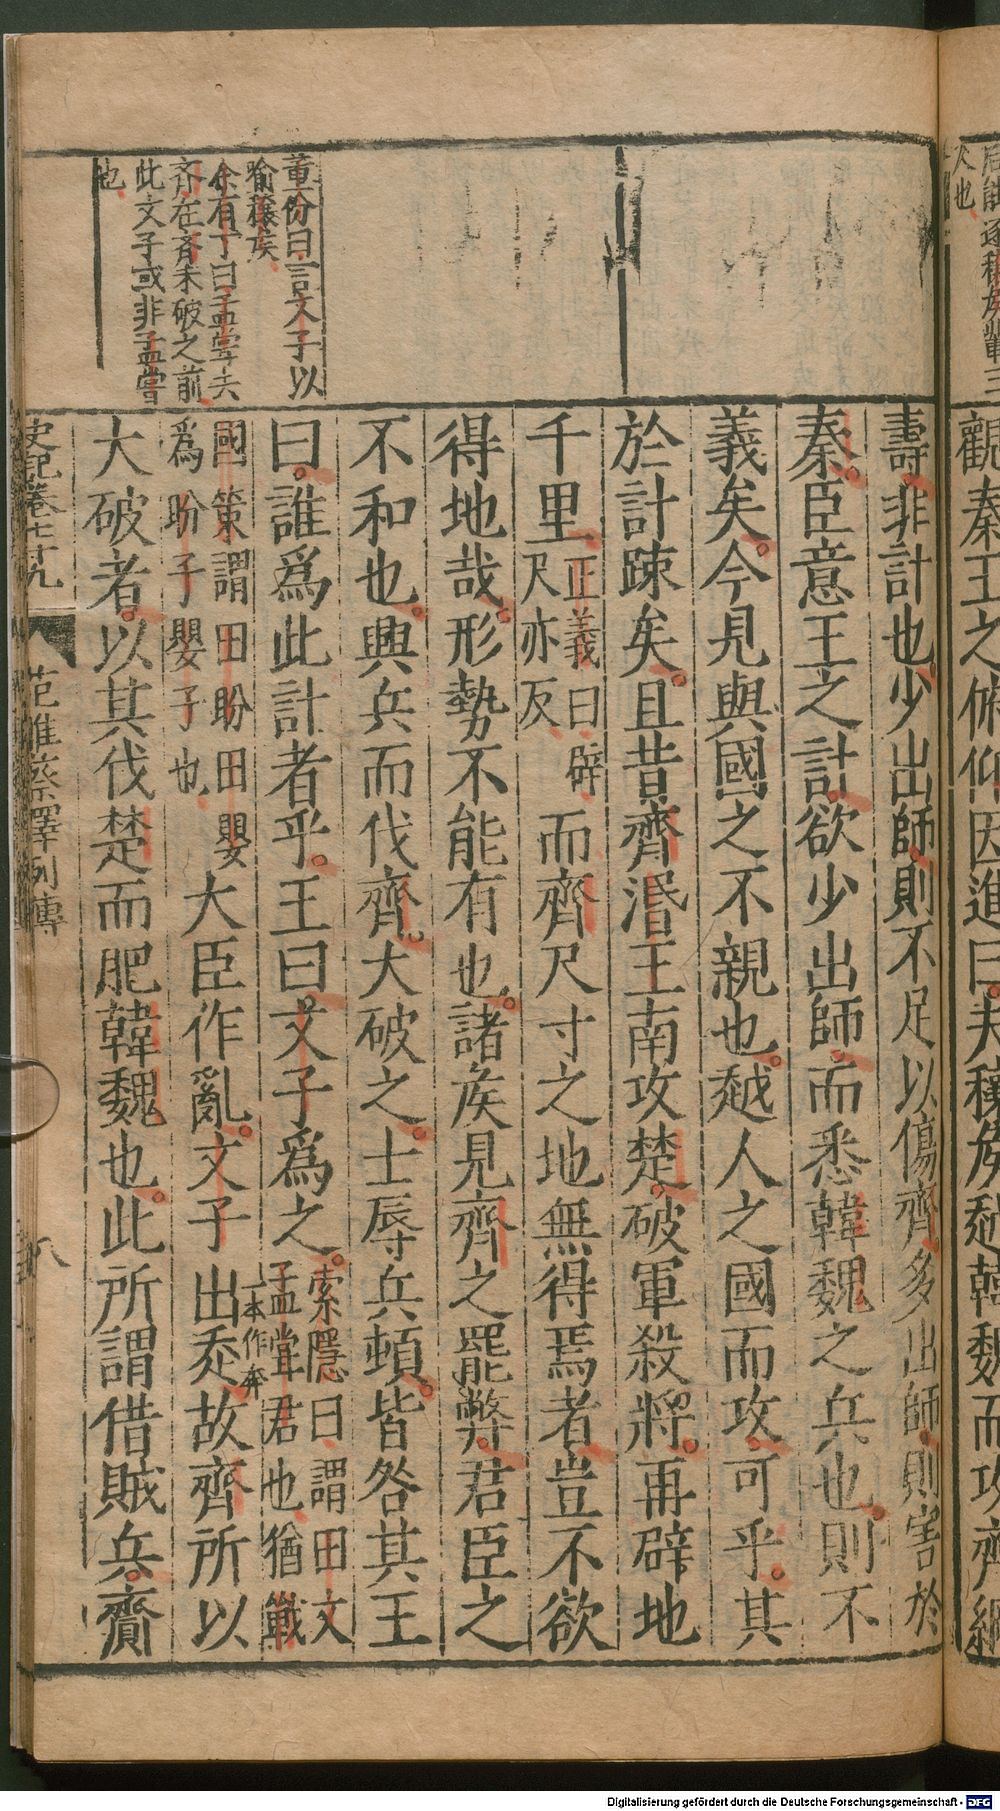 觀秦王之俯仰因進曰夫穰侯越韓魏而攻齊綱
壽非計也少出師則不足以傷齊多出師則害於
秦臣意王之計欲少出師而悉韓魏之兵也則不
義矣今見與國之不親也越人之國而攻可乎其
於計踈矣且昔齊湣王南攻楚破軍殺將再辟地
千里
正義曰辟
尺亦反
而齊尺寸之地無得焉者豈不欲
得地哉形勢不能有也諸矦見齊之罷弊君臣之
不和也興兵而伐齊大破之士辱兵頓皆咎其王
曰誰爲此計者乎王曰文子爲之
索隱曰謂田文
孟嘗君也猶戰
國策謂田盼田嬰
爲盼子嬰子也
大臣作亂文子出
一本作奔
故齊所以
大破者以其伐楚而肥韓魏也此所謂借賊兵齎
董份曰言文子以
喻穰矦
余有丁曰孟嘗去
齐在斉未破之前
此文子或非孟嘗
也
史記卷七十九
范雎蔡澤列傳
八
Digitalisierung gefördert durch die Deutsche Forschungsgemeinschaft - DFG